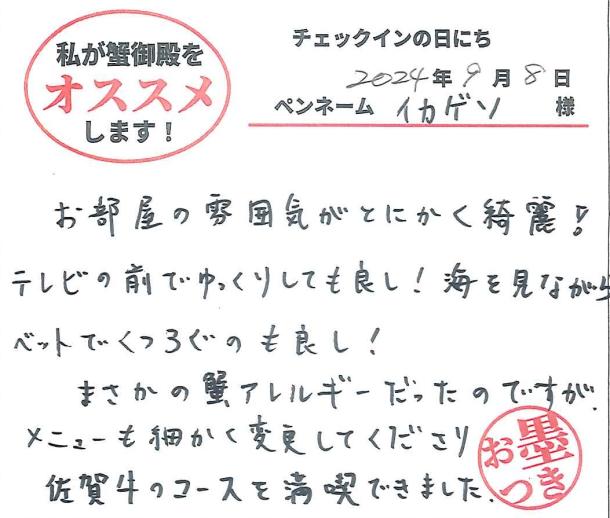 私が蟹御殿を
オススメ
します！
チェックインの日にち
2024年9月8日
ペンネーム イカゲソ 様
お部屋の雰囲気がとにかく綺麗!
テレビの前でゆっくりしても良し！海を見ながら
ベットでくつろぐのも良し！
まさかの蟹アレルギーだったのですが、
メニューも細かく変更してくださり
佐賀牛のコースを満喫できました。
お墨つき